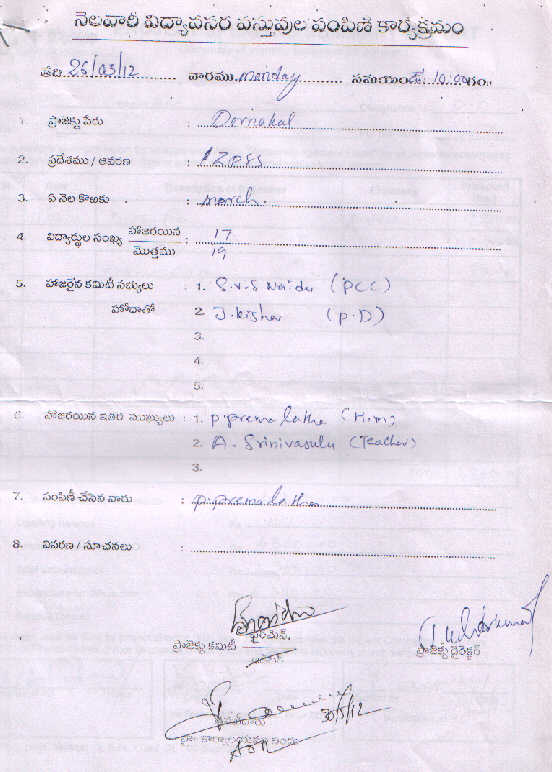 నెలవారీ విద్యావసర వస్తువుల పంపిణీ కార్యక్రమం
తేది 26/03/12 వారము monday సమయం 10.00గం.
1. ప్రాజెక్టు పేరు : Dornakal
2. ప్రదేశము / ఆవరణ :
3. ఏ నెల కొఱకు : march.
4. విద్యార్థుల సంఖ్య హాజరయిన : 17
మొత్తము 19
5. హాజరైన కమిటీ సభ్యులు : 1. S.V.S Naidu (PCC)
హోదాతో 2. J. Kishor (P.D)
3.
4.
5.
6. హాజరయిన ఇతర ముఖ్యులు : 1. P. prema latha (H.M)
2. A. Srinivasulu (Teacher)
3.
7. పంపిణీ చేసిన వారు : P. premalatha
8. వివరణ / సూచనలు :
ఛైర్మెన్,
ప్రాజెక్టు కమిటీ
ప్రాజెక్టు డైరెక్టర్
30/5/12